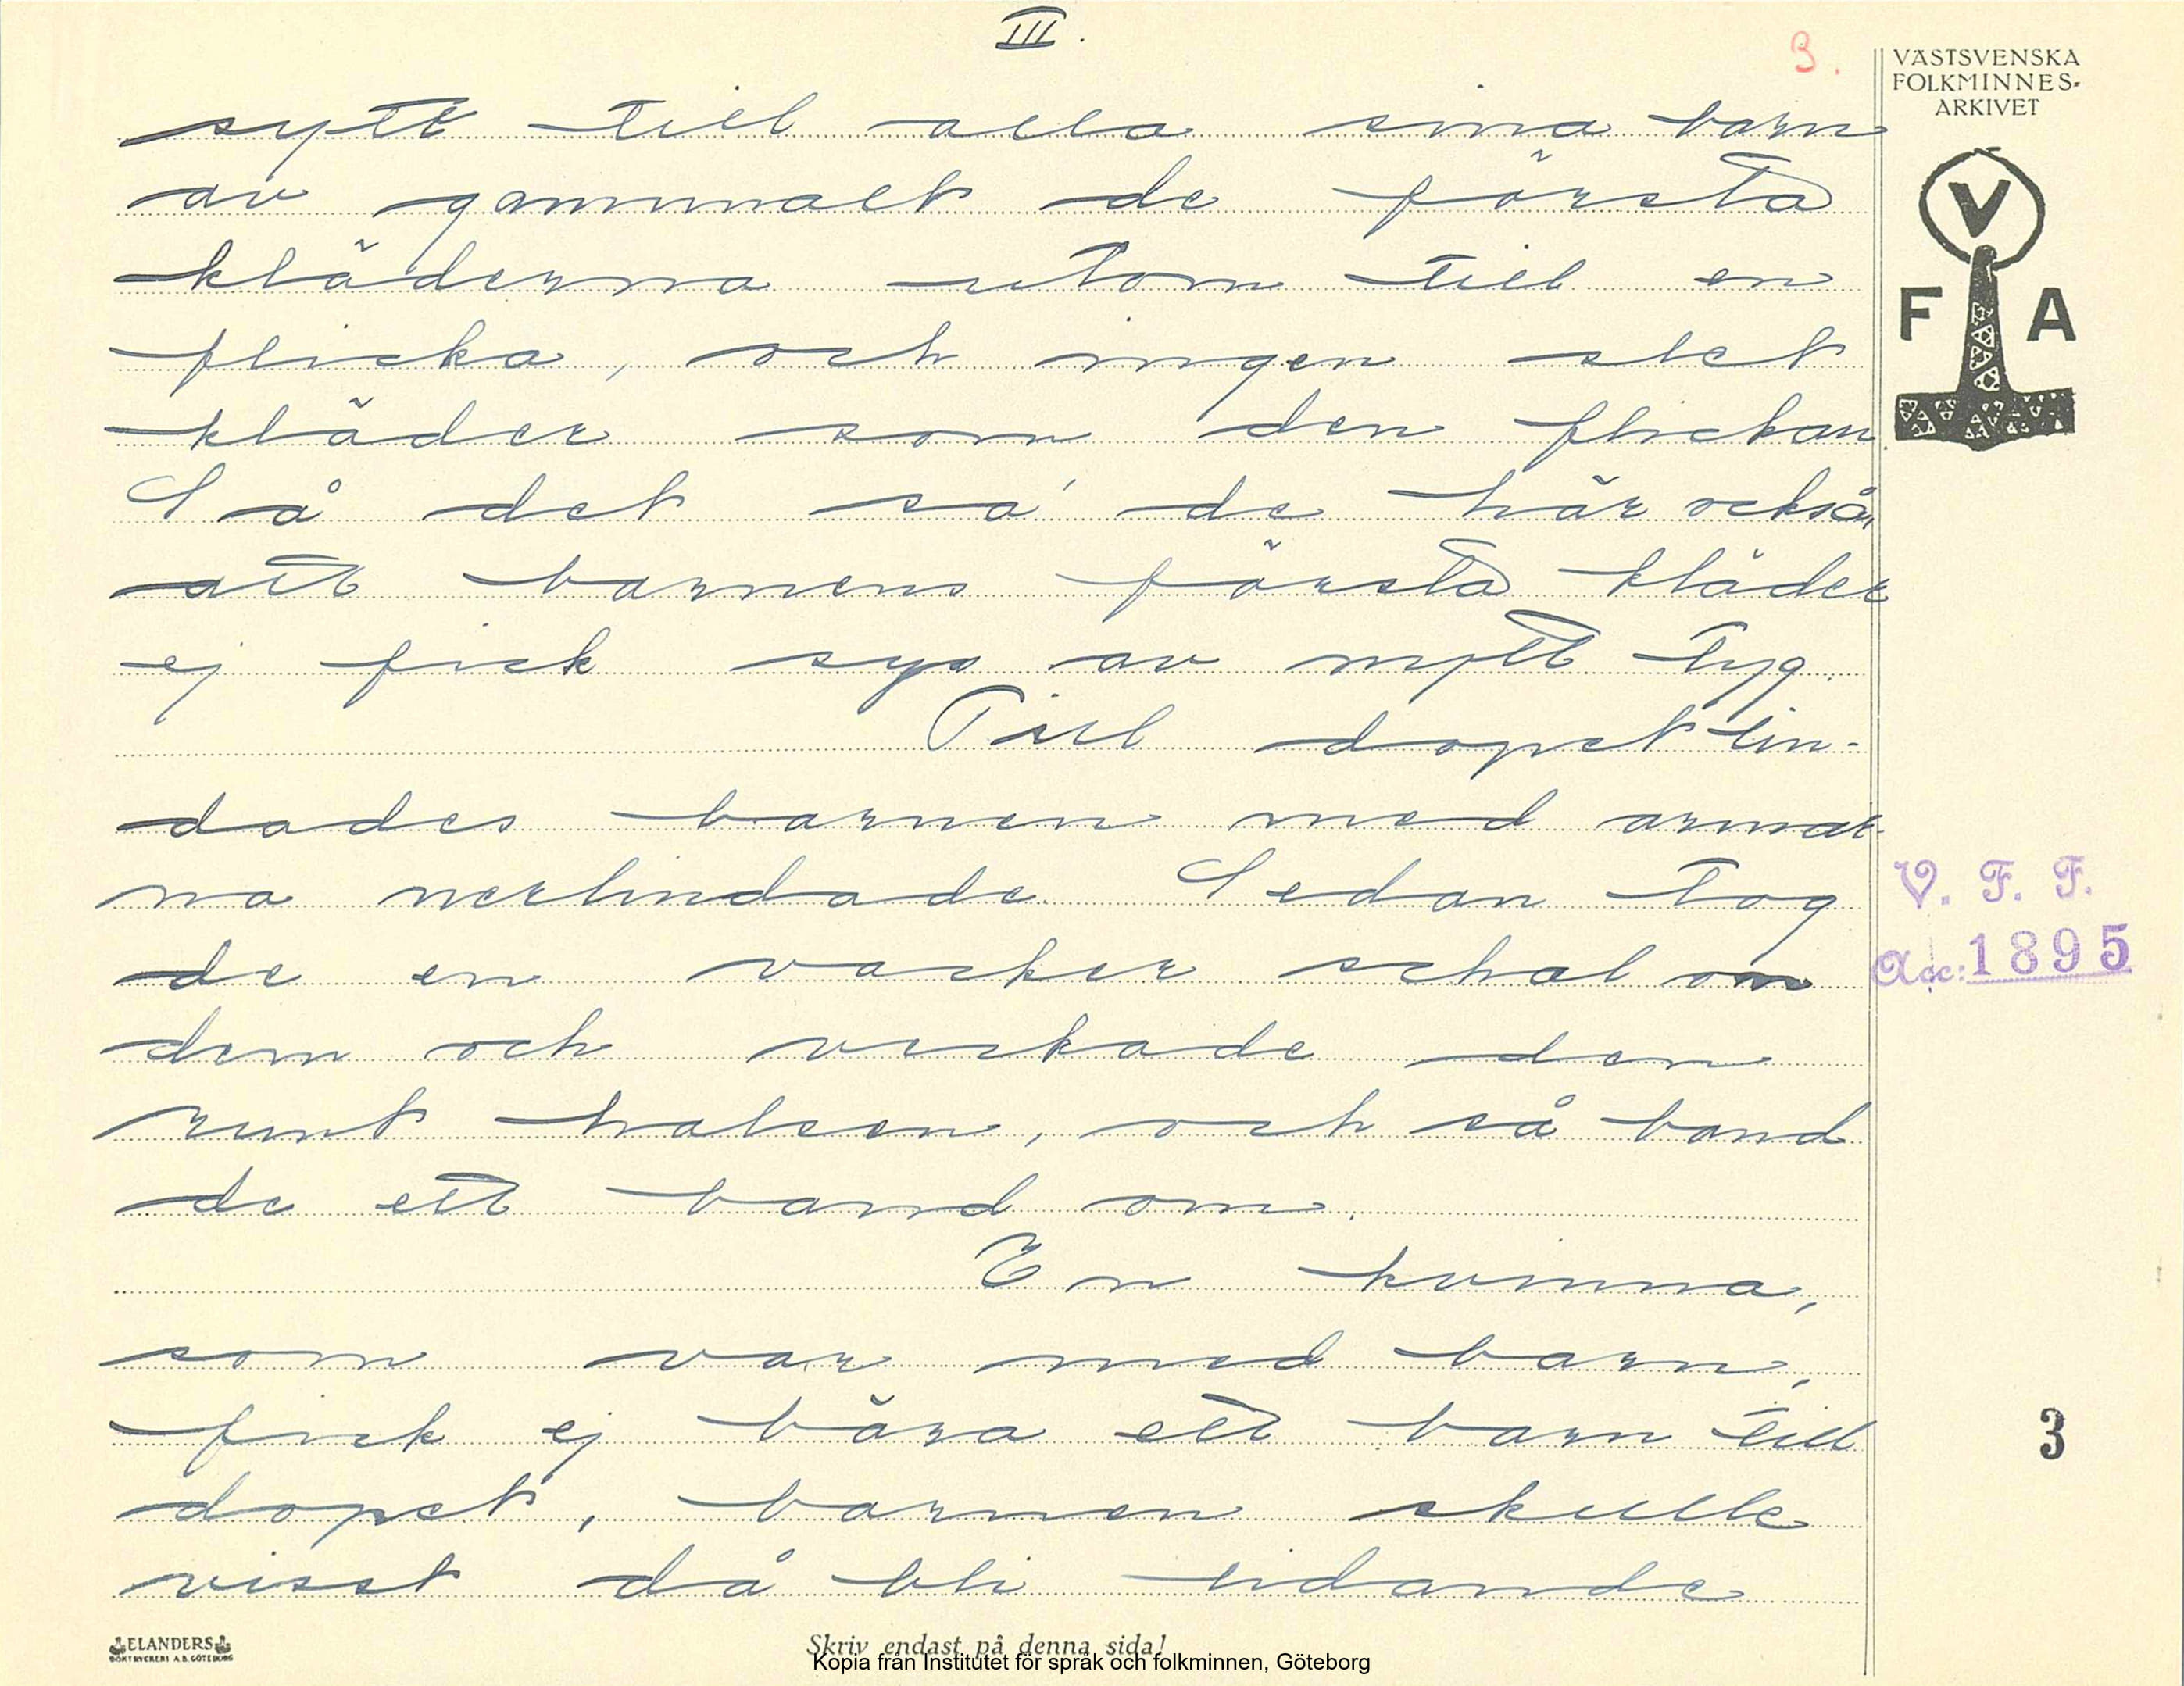 III.
3.
VÄSTSVENSKA
FOLKMINNES-
ARKIVET
V
F A
sytt till alla sina barn
av gammalt de första
kläderna utom till en
flicka, och ingen slet
kläder som den flickan
Så det sa' de här också,
att barnens första kläder
ej fick sys av nytt tyg.
Till dopet lin-
dades barnen med armar-
na nerlindade. Sedan tog
de en vacker schal om
dem och veckade den
runt halsen, och så band
de ett band om.
En kvinna,
som var med barn,
fick ej bära ett barn till
dopet, barnen skulle
visst då bli lidande
V. F. F.
Acc: 1895
3
ELANDERS
BOKTRYCKERI A.B. GÖTEBORG
Skriv endast på denna sida!
Kopia från Institutet för språk och folkminnen, Göteborg